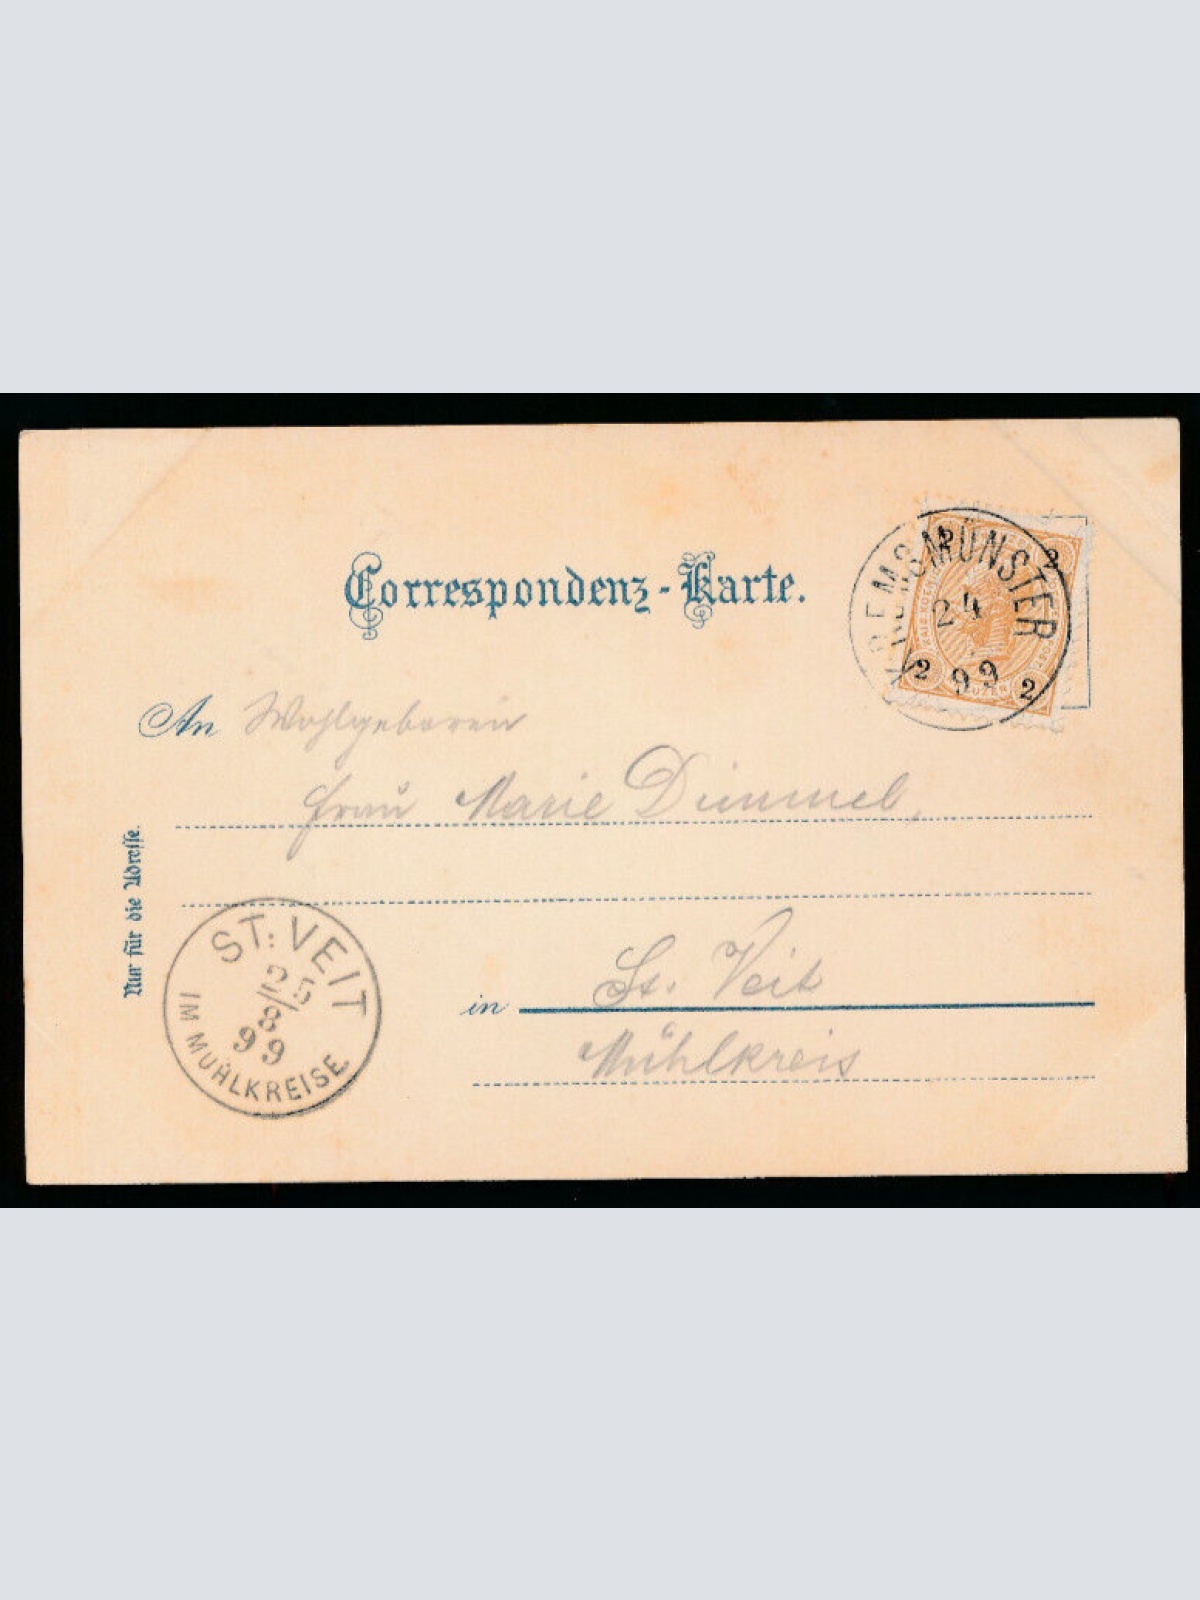 Correspondenz-Karte.
KREMSMÜNSTER
24
99
2
2
2
2
An Wohlgeboren
Frau Marie Dimmel,
Nur für die Adresse.
ST. VEIT
25/8
99
IM MÜHLKREISE
in St. Veit
Mühlkreis